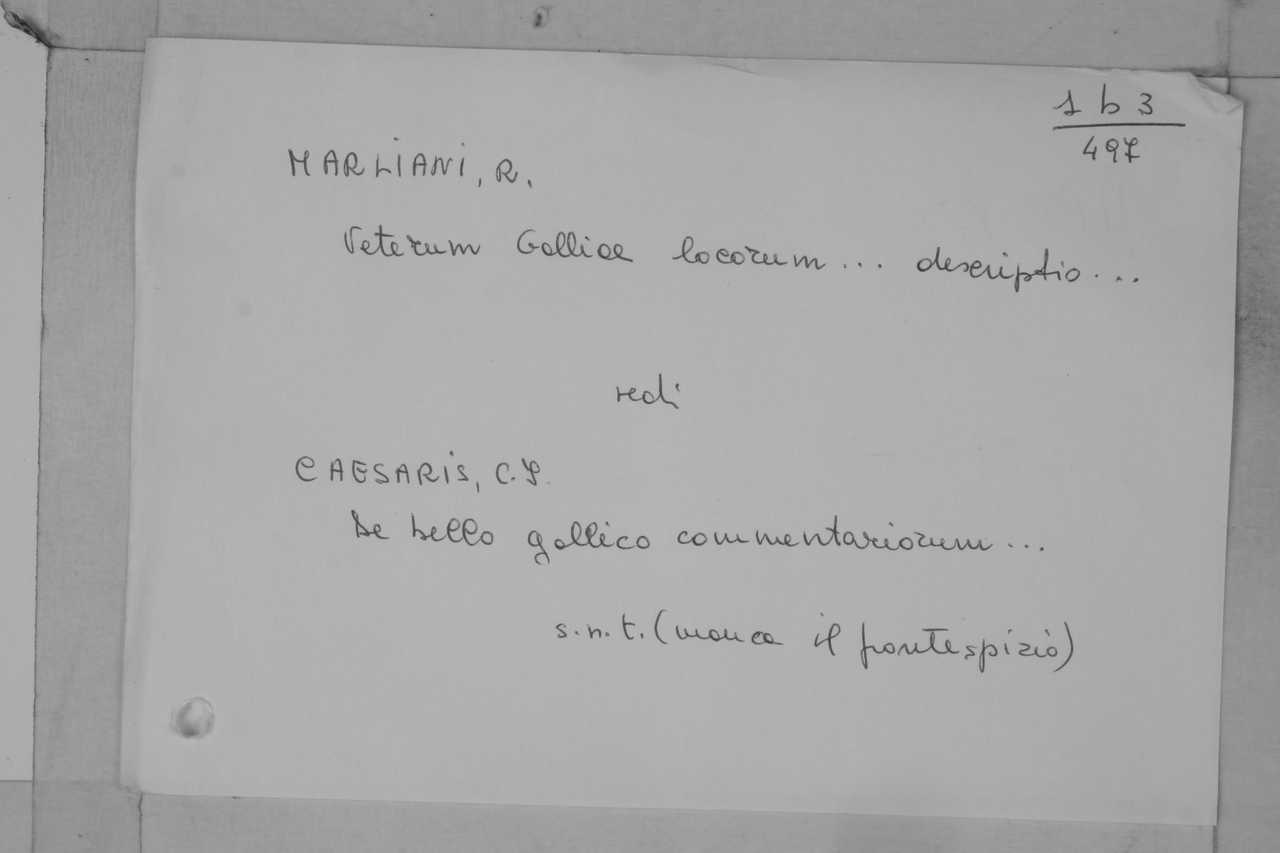 1 b 3
497
MARLIANI, R.
Veterum Galliae locorum... descriptio...
vedi
CAESARIS, C.J.
De bello gallico commentariorum...
s.n.t. (manca il frontespizio)